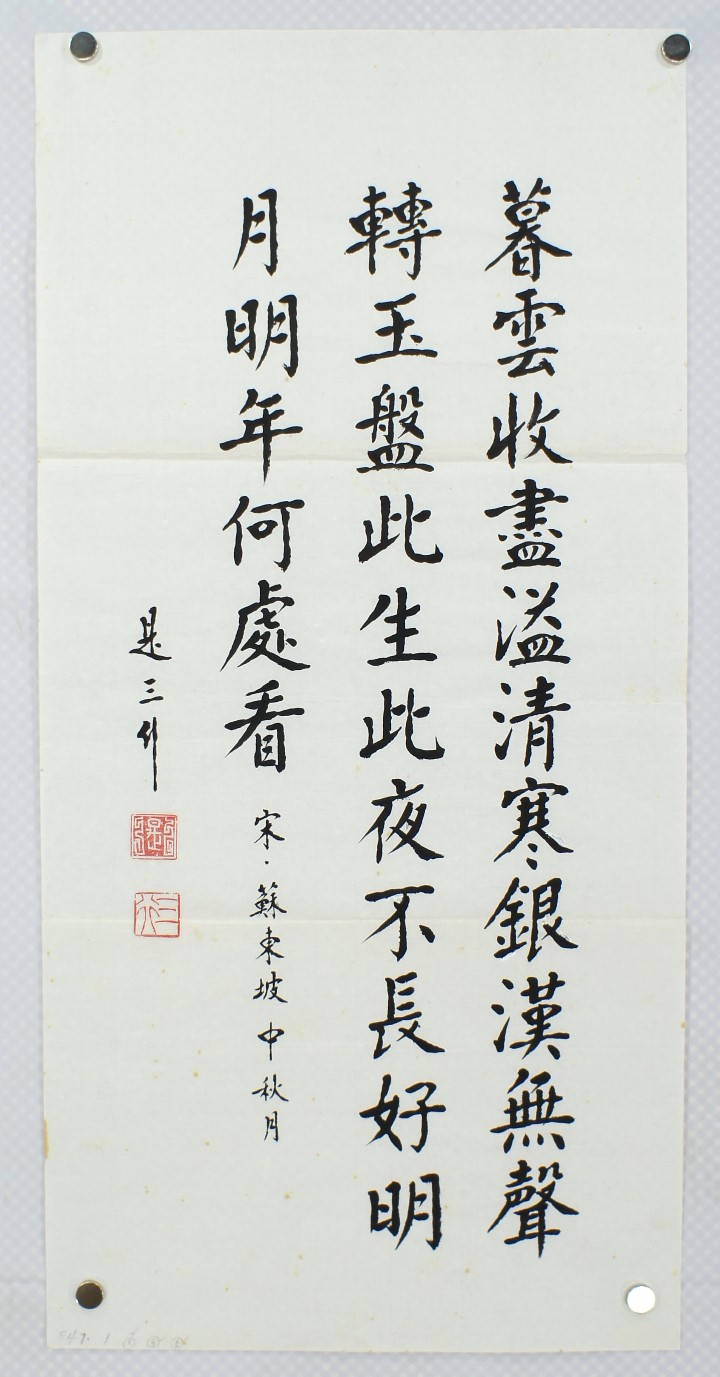 暮雲收盡溢清寒銀漢無聲
轉玉盤此生此夜不長好明
月明年何處看
宋·蘇東坡中秋月